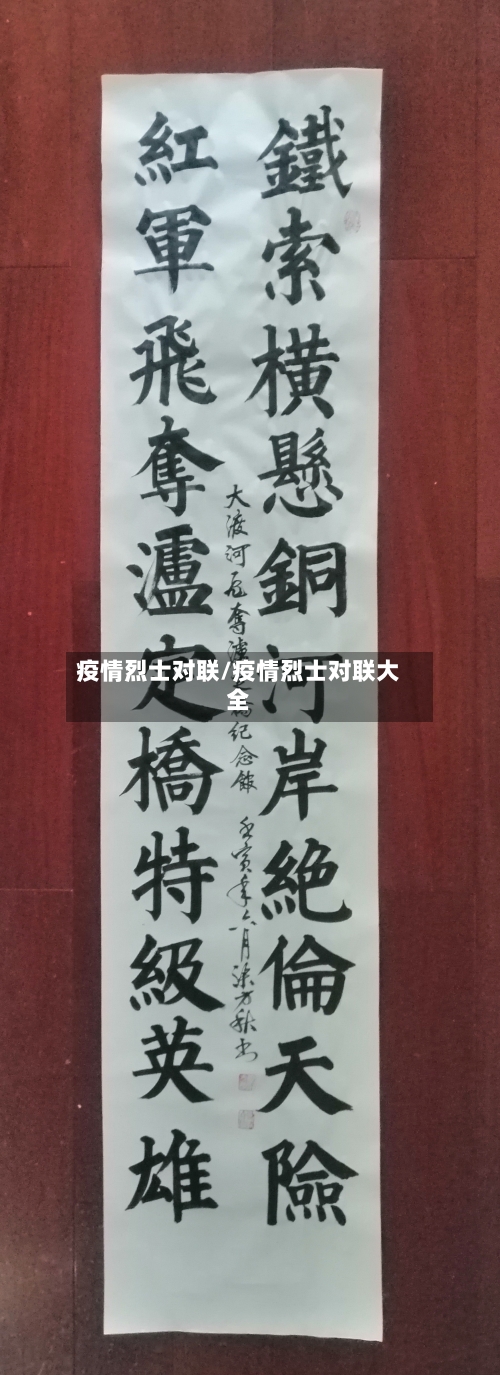 鐵索橫懸銅河岸絕倫天險
紅軍飛奪瀘定橋特級英雄
大渡河飛奪瀘橋紀念館 壬寅年六月梁方秋书
疫情烈士对联/疫情烈士对联大
全